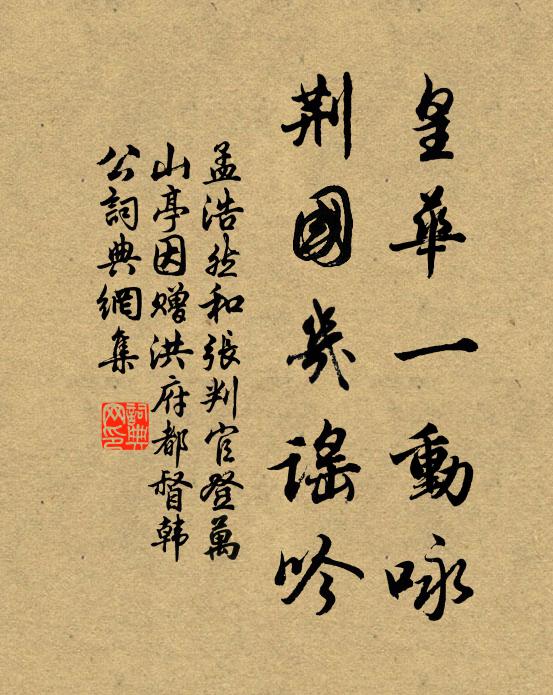 皇華一動咏
荆國幾謡吟
孟浩然和張判官登萬
山亭因贈洪府都督韩
公詞典網集
詞典
网印